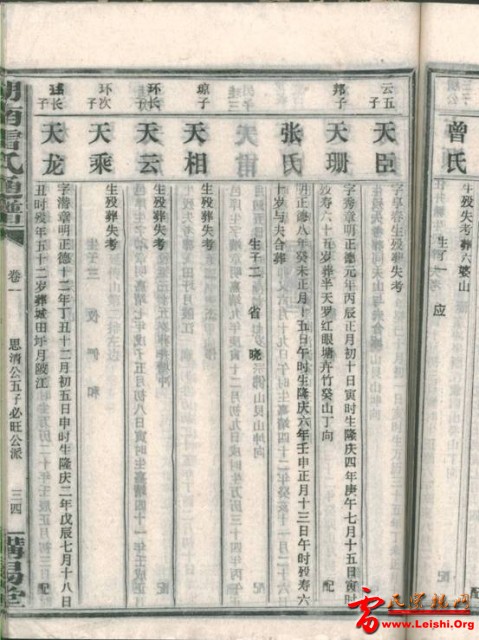 曾氏
生殁葬失考葬六婆山
生子一 应
云五子
天臣
字早春生殁葬失考
邦子
天珊
字秀章明正德元年丙辰正月初十日寅时生隆庆四年庚午七月十五日寅时
殁寿六十五岁葬半天罗红眼塘卉竹癸山丁向
配
张氏
明正德八年癸未正月十五日午时生隆庆六年壬申正月十三日午时殁寿六
十岁与夫合葬
生子二 省 晓
琼子
天相
生殁葬失考
环长子
天云
生殁葬失考
环次子
天乘
生殁葬失考
长子
天龙
字潜章明正德十二年丁丑十二月初五日申时生隆庆二年戊辰七月十八日
丑时殁年五十二岁葬城田圩月陂江
配
湖南雷氏通谱
卷一
思清公五子必旺公派
三四
雷氏宗族网
www.Leishi.Org